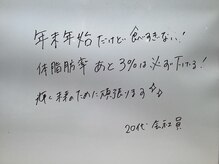 年末年始だけど食べすぎない!
体脂肪率あと3%は必ず下げる!
輝く未来のために頑張ります♪
20代 会社員